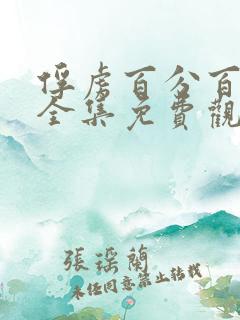 俘虏百分百
全集免費觀
張瑤蘭
未经同意禁止转载